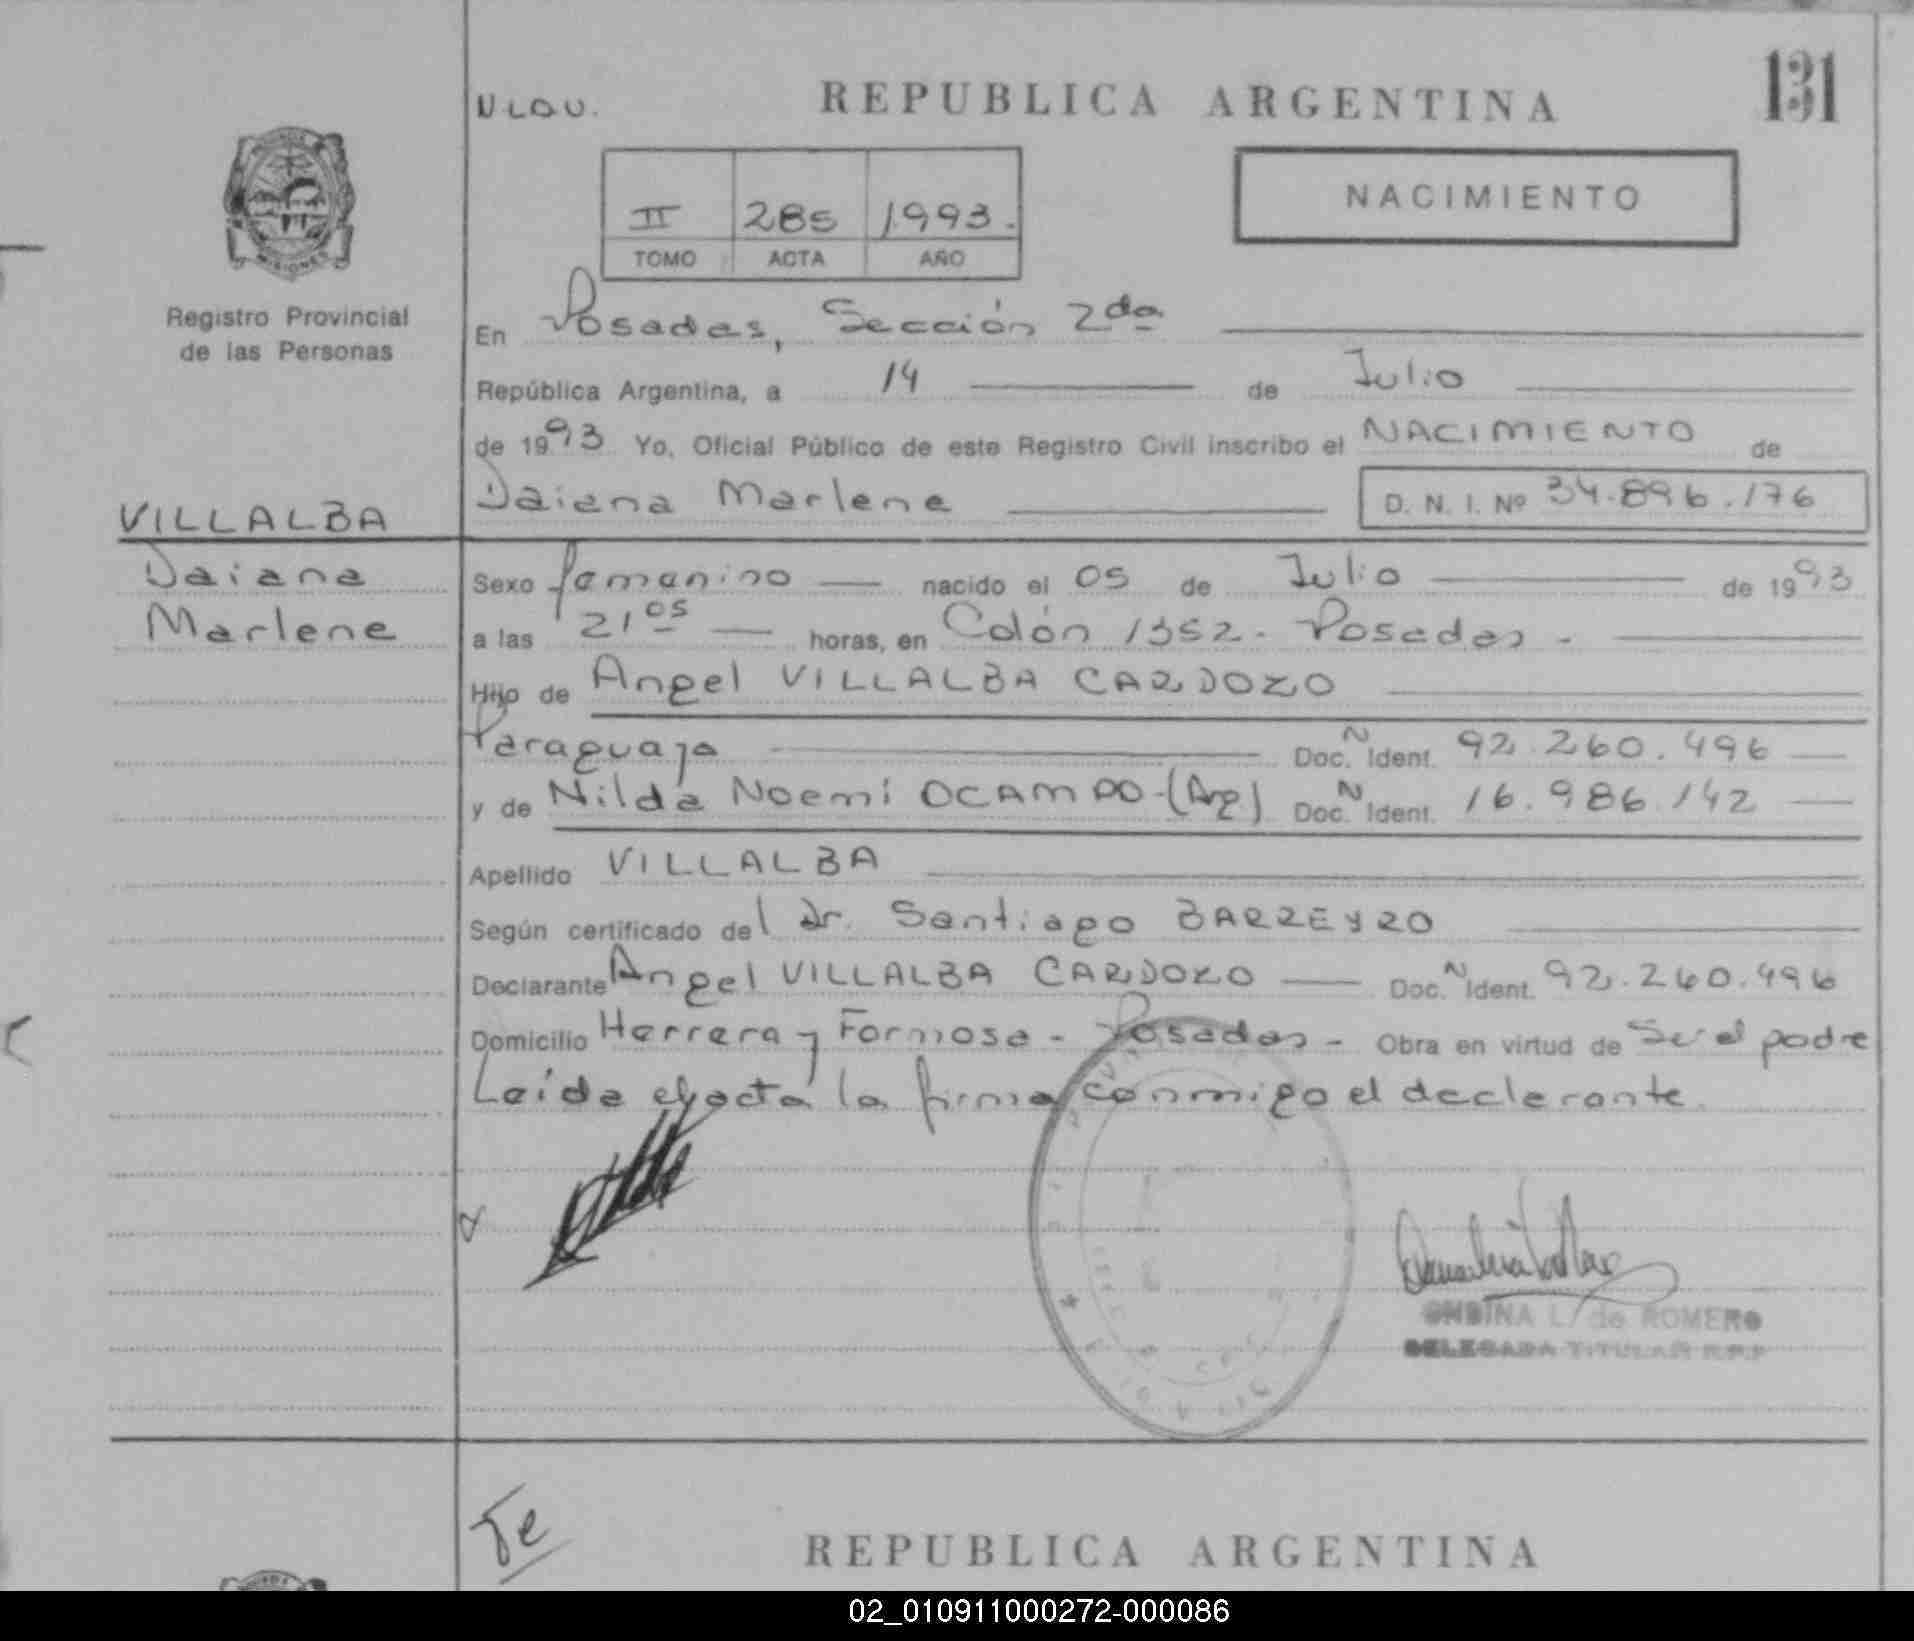 REPUBLICA ARGENTINA
131
NACIMIENTO
II 285 1993.
TOMO ACTA AÑO
MISIONES
Registro Provincial
de las Personas
En Posadas, Sección 2da
República Argentina, a 14 de Julio
de 1993 Yo, Oficial Público de este Registro Civil inscribo el NACIMIENTO de
Daiana Marlene D. N. I. Nº 34.896.176
VILLALBA
Daiana
Marlene
Sexo femenino nacido el 05 de Julio de 1993
a las 21 05 horas, en Colón 1352. Posadas -
Hijo de Angel VILLALBA CARDOZO
Paraguaya Doc. N Ident. 92.260.496
y de Nilda Noemí OCAMPO - (Arg) Doc. N Ident. 16.986.142
Apellido VILLALBA
Según certificado del Dr. Santiago BARREYRO
Declarante Angel VILLALBA CARDOZO Doc. N Ident. 92.260.496
Domicilio Herrera y Formosa - Posadas - Obra en virtud de Ser el padre
Leída el acta la firma conmigo el declarante.
ONDINA L. de ROMERO
DELEGADA TITULAR R.P.P
Te
REPUBLICA ARGENTINA
02_010911000272-000086